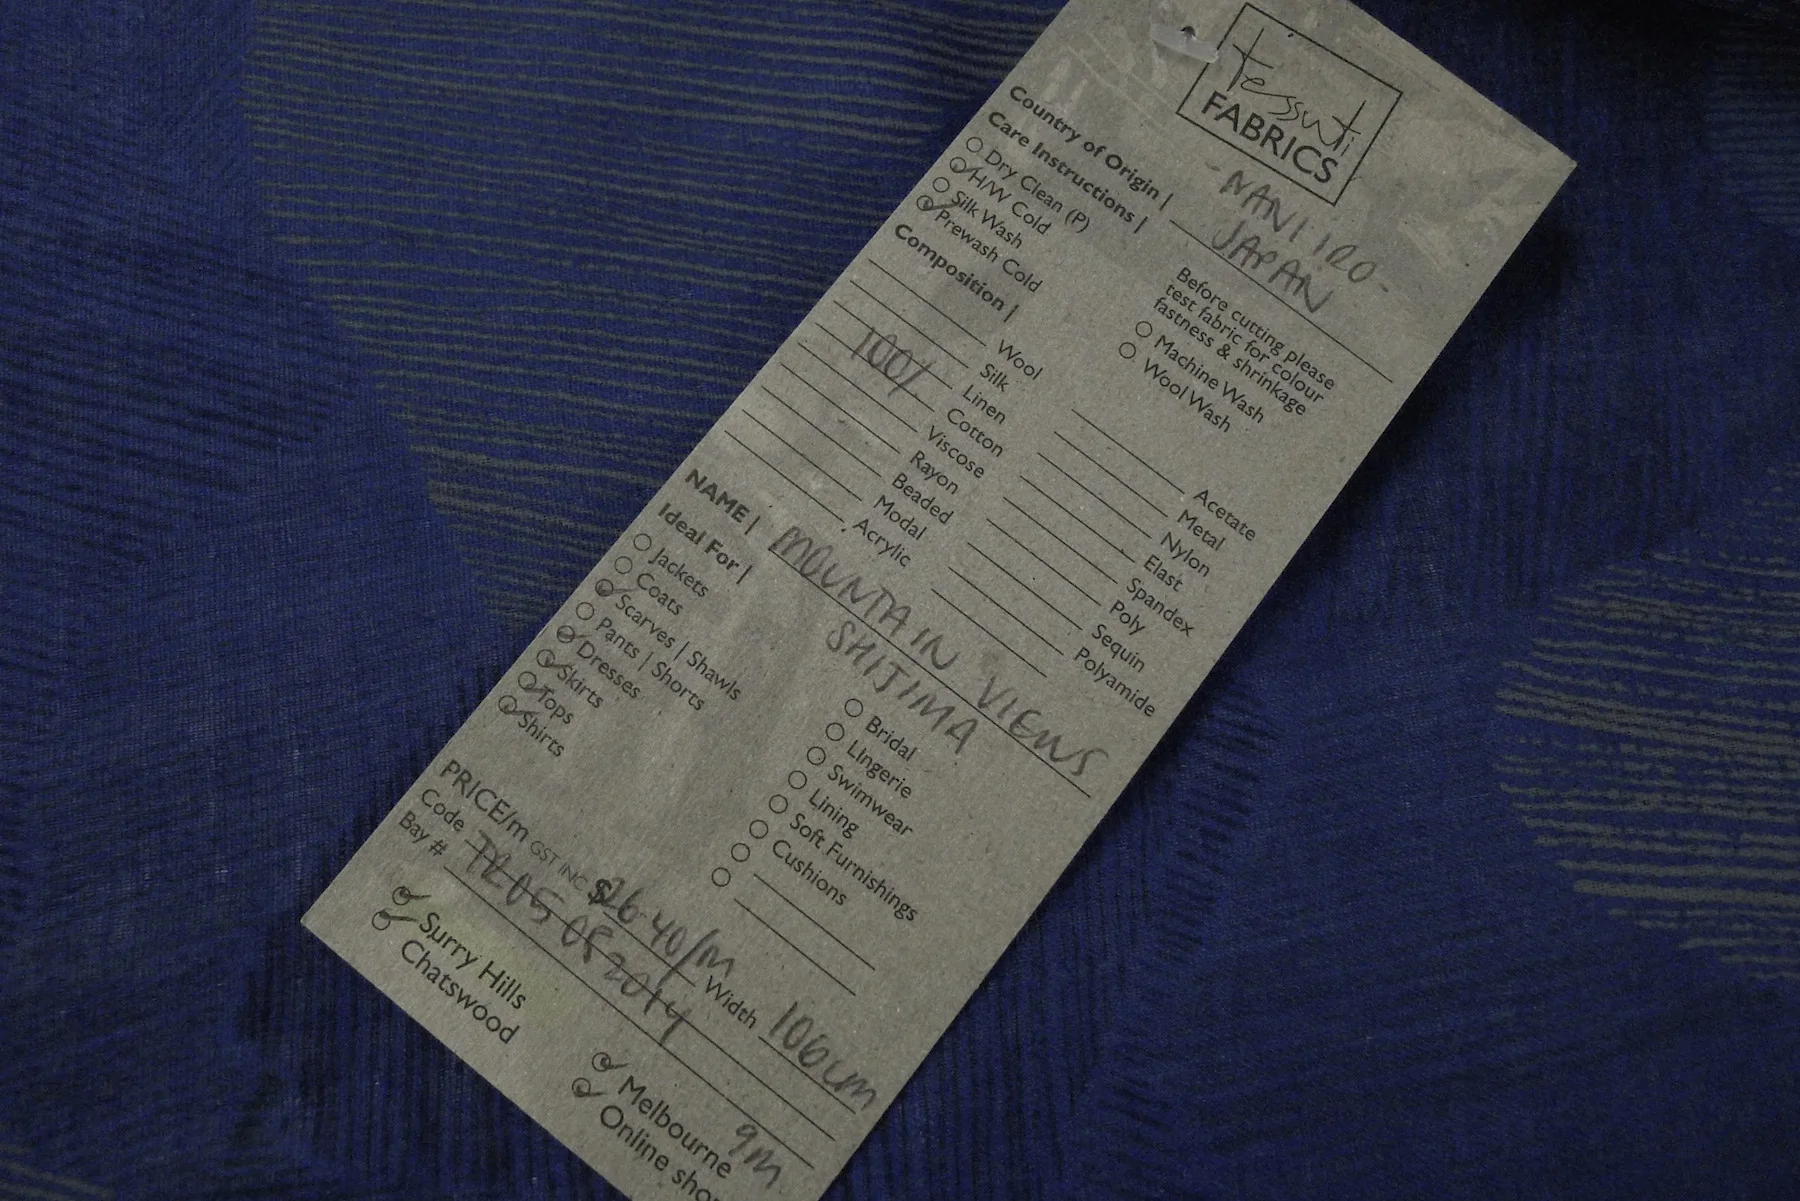 tessuti
FABRICS
- NANI IRO -
Country of Origin | JAPAN
Care Instructions |
Dry Clean (P)
H/W Cold
Silk Wash
Prewash Cold
Before cutting please
test fabric for colour
fastness & shrinkage
Machine Wash
Wool Wash
Composition |
Wool
Silk
Linen
100% Cotton
Viscose
Rayon
Beaded
Modal
Acrylic
Acetate
Metal
Nylon
Elast
Spandex
Poly
Sequin
Polyamide
NAME | MOUNTAIN VIEWS
SHIJIMA
Ideal For |
Jackets
Coats
Scarves | Shawls
Pants | Shorts
Dresses
Skirts
Tops
Shirts
Bridal
LIngerie
Swimwear
Lining
Soft Furnishings
Cushions
PRICE/m GST INC $26.40/m Width 106cm
Code TR05082014
Bay # 9M
Surry Hills
Chatswood
Melbourne
Online